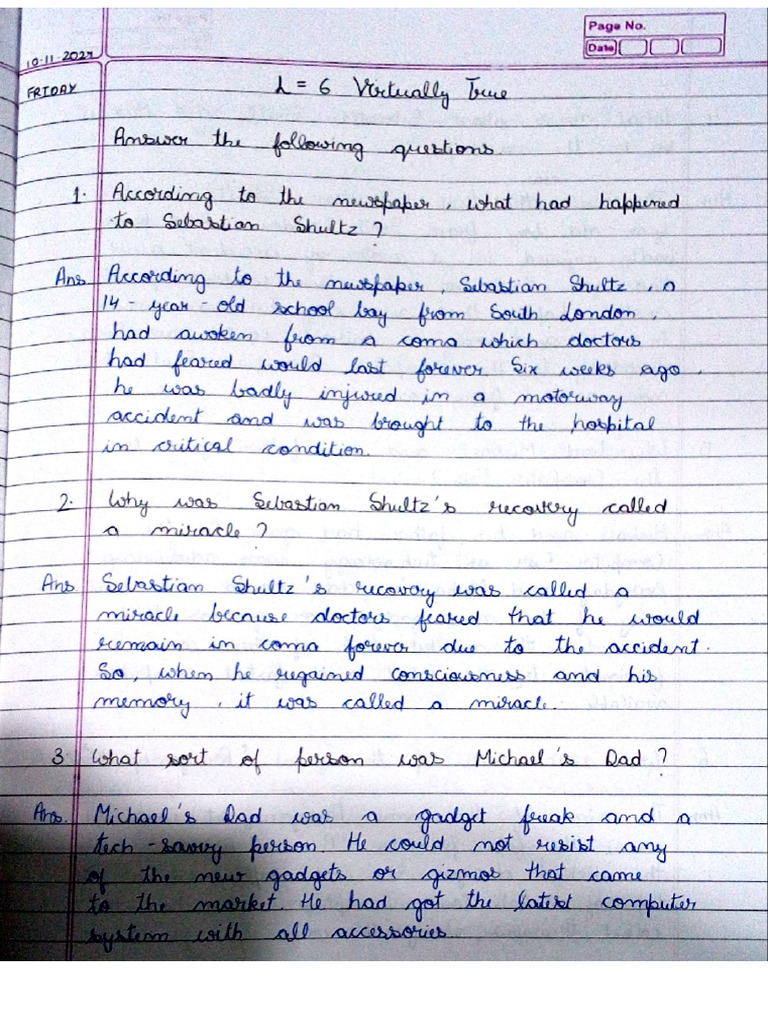 Page No.
Date
10-11-2021
FRIDAY
L = 6 Virtually True
Answer the following questions.
1. According to the newspaper, what had happened
to Sebastian Shultz ?
Ans According to the newspaper, Sebastian Shultz, a
14-year-old school boy from South London,
had awoken from a coma which doctors
had feared would last forever. Six weeks ago,
he was badly injured in a motorway
accident and was brought to the hospital
in critical condition.
2. Why was Sebastian Shultz's recovery called
a miracle ?
Ans Sebastian Shultz's recovory was called a
miracle because doctors feared that he would
remain in coma forever due to the accident.
So, when he regained consciousness and his
memory, it was called a miracle.
3 What sort of person was Michael's Dad ?
Ans. Michael's Dad was a gadget freak and a
tech-savvy person. He could not resist any
of the new gadgets or gizmos that came
to the market. He had got the latest computer
system with all accessories.